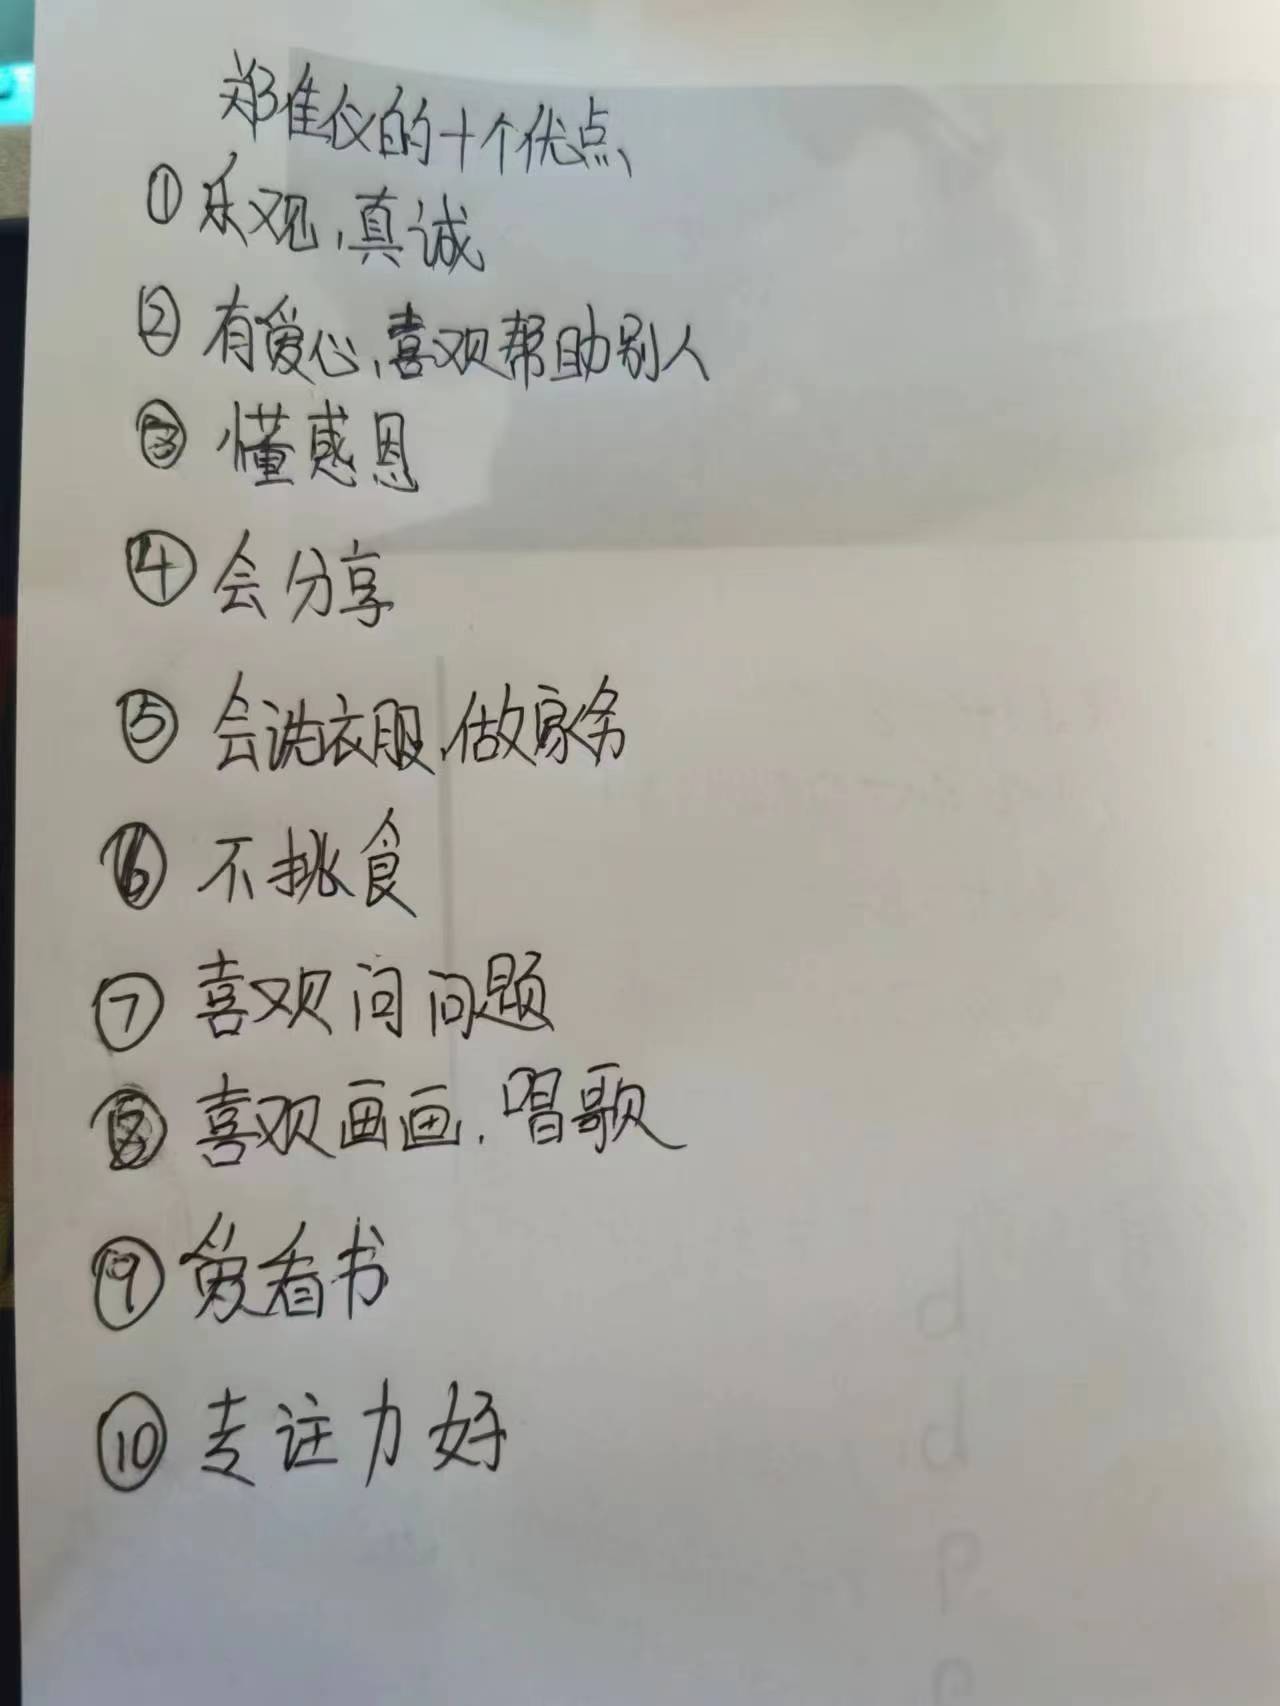 郑佳仪的十个优点
①乐观,真诚
②有爱心,喜欢帮助别人
③懂感恩
④会分享
⑤会洗衣服,做家务
⑥不挑食
⑦喜欢问问题
⑧喜欢画画,唱歌
⑨爱看书
⑩专注力好